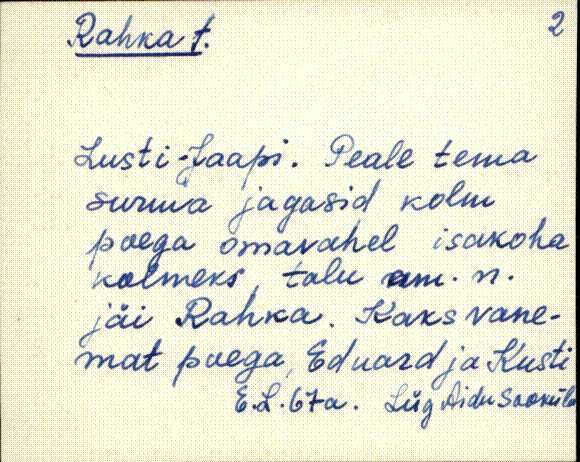 Rahka t.
2
Lusti-Jaapi. Peale tema
surma jagasid kolm
poega omavahel isakoha
kolmeks, talu am. n.
jäi Rahka. Kaks vane-
mat poega, Eduard ja Kusti
E.L. 67a. Lüg Aidu Sooküla